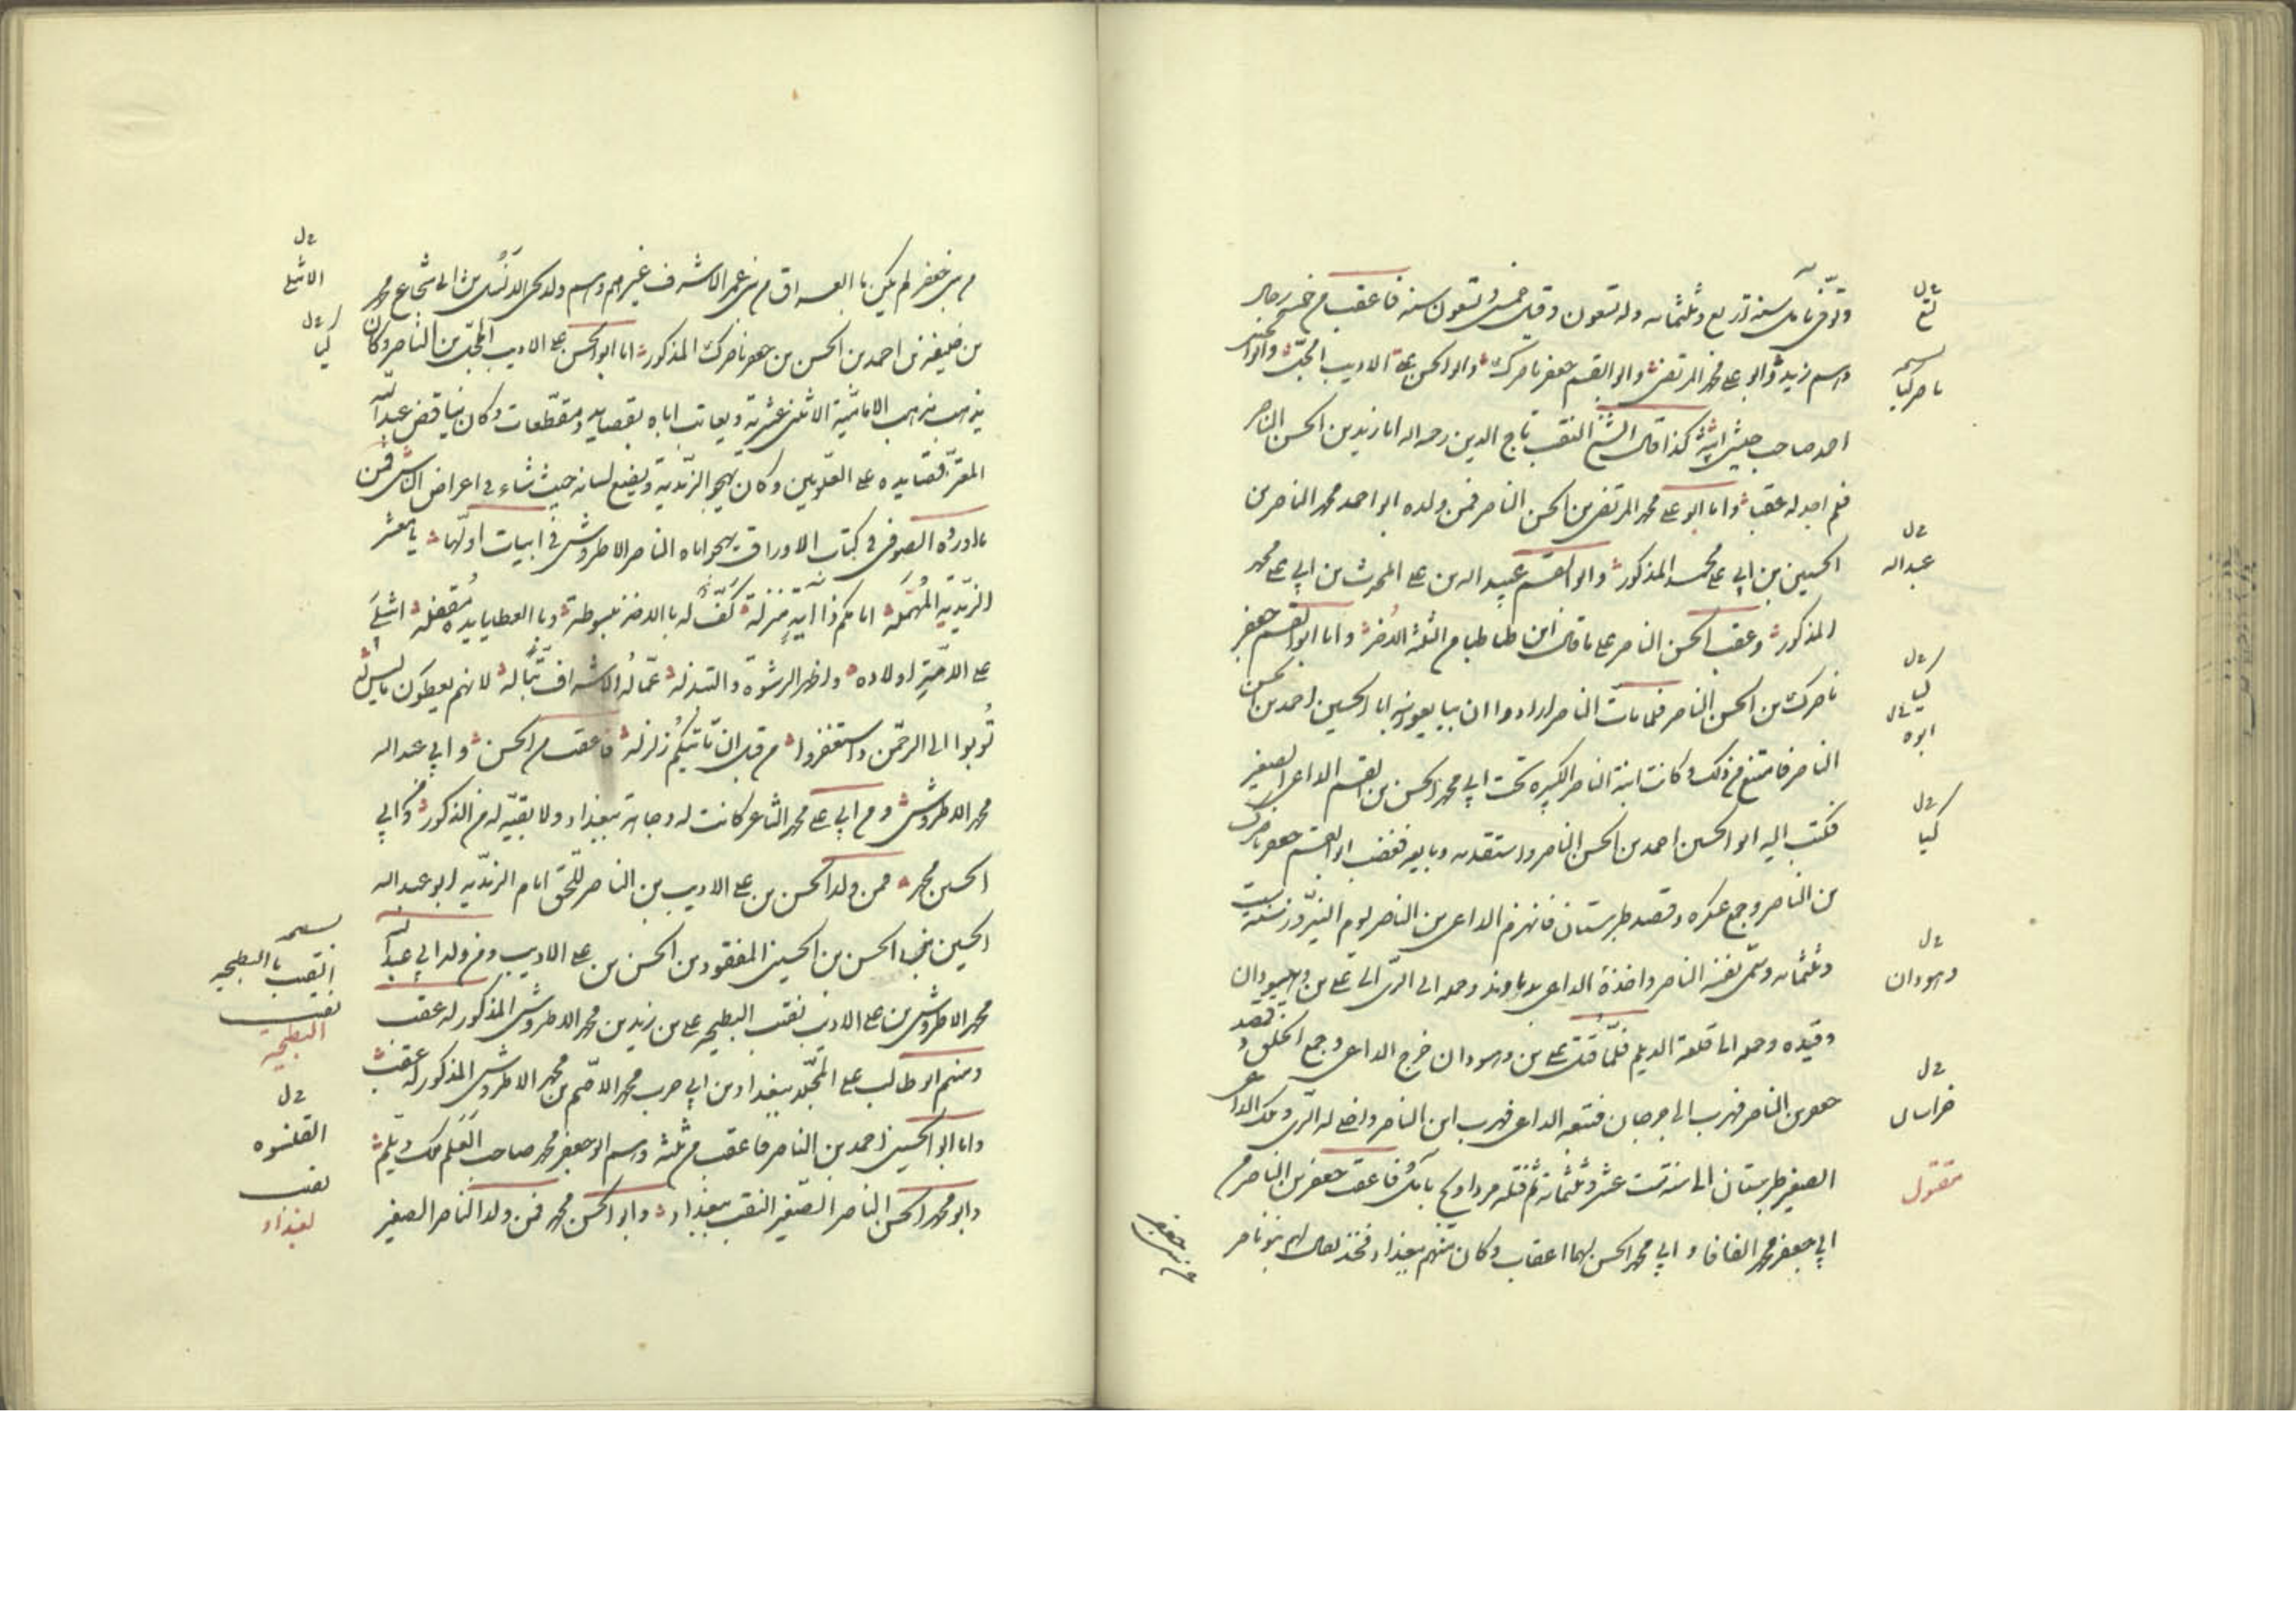 وتوفي بآمل سنة اربع وثلثمائه وله تسعون وقيل خمس وتسعون سنه فاعقب من خمسة رجال
وهم زيد وابو على محمد المرتضى وابو القسم جعفر ناصرك وابو الحسن على الاديب المجل وابو الحسين
احمد صاحب جيش ابيه كذا قال الشيخ النقيب تاج الدين رحمه اله اما زيد بن الحسن الناصر
فلم اجد له عقب واما ابو على محمد المرتضى بن الحسن الناصر فمن ولده ابو احمد محمد الناصر بن
الحسين بن ابي على محمد المذكور وابو القسم عبيد اله بن على المحدث بن ابي على محمد
المذكور وعقب الحسن الناصر على ما قال ابن طباطبا من الثلثة الاخر واما ابو القسم جعفر
ناصرك بن الحسن الناصر فلما مات الناصر ارادوا ان يبايعوا ابنه ابا الحسين احمد بن الحسن
الناصر فامتنع من ذلك وكانت ابنة الناصر الكبيره تحت ابي محمد الحسن بن القسم الداعى الصغير
فكتب اليه ابو الحسين احمد بن الحسن الناصر واستقدمه وبايعه فغضب ابو القسم جعفر ناصرك
بن الناصر وجمع عسكره وقصد طبرستان فانهزم الداعى من الناصر يوم النيروز سنة ست
وثلثمائه وسمى نفسه الناصر واخذه الداعى بدماوند وحمله الى الرى الى على بن وهسودان
وقيده وحمله الى قلعة الديلم فلما قتل على بن وهسودان خرج الداعى وجمع الخلق وقصد
جعفر بن الناصر فهرب الى جرجان فتبعه الداعى فهرب ابن الناصر واخلى له الرى وملك الداعى
الصغير طبرستان الى سنة ست عشر وثلثمائة ثم قتله مرداويج بآمل فاعقب جعفر بن الناصر من
ابي جعفر محمد الفافا و ابي محمد الحسن لهما اعقاب وكان منهم ببغداد فخذ يقال لهم بنو ناصر
من بنى جعفر
خ ل
ناصر كيا
خ ل
عبد اله
خ ل
كيا
خ ل
ابوه
خ ل
كيا
خ ل
وهودان
خ ل
خراسان
مقتول
من بنى جعفر لم يكن بالعراق من بنى عمر الاشرف غيرهم وهم ولد يحيى بن ابي شجاع محمد
بن خليفه بن احمد بن الحسن بن جعفر ناصرك المذكور اما ابو الحسن على الاديب المجل بن الناصر وكان
يذهب مذهب الاماميّة الاثنى عشرية ويعاتب اباه بقصايد ومقطعات وكان يناقض عبد الله
المعتز قصايده على العلويين وكان يهجو الزيدية ويضع لسانه حيث شاء في اعراض الناس فمن
ما اورده الصوفى فى كتاب الاوراق يهجو اباه الناصر الاطروش فى ابيات اولها يا معشر
الزيدية المهمله امامكم ذا اية منزله كف له بالاخذ مبسوطة وبالعطايا يده مقفله اشلى
على الامة اولاده واظهر الرشوة والتبذله
توبوا الى الرحمن واستغفروا من قبل ان تاتيكم زلزله فاعقب من الحسن و ابي عبد اله
محمد الاطروش ومن ابي على محمد الشاعر كانت له وجاهة ببغداد ولا بقيه له من الذكور ومن ابي
الحسين محمد فمن ولد الحسن بن على الاديب بن الناصر للحق امام الزيديه ابو عبد اله
الحسين بن الحسن بن الحسين المفقود بن الحسن بن على الاديب ومن ولد ابي عبد اله
محمد الاطروش بن على الاديب نقيب البطيحه على بن زيد بن محمد الاطروش المذكور له عقب
ومنهم ابو طالب على المجلد ببغداد بن ابي حرب محمد الاصم بن محمد الاطروش المذكور له عقب
واما ابو الحسين احمد بن الناصر فاعقب من ثلثه وهم ابو جعفر محمد صاحب القلنسوه ملك ديلم
وابو محمد الحسن الناصر الصغير النقيب ببغداد وابو الحسن محمد فمن ولد الناصر الصغير
خ ل
خ ل
كيا
النقيب بالبطيحه
نقيب
البطيحة
خ ل
القلنسوه
نقيب
بغداد